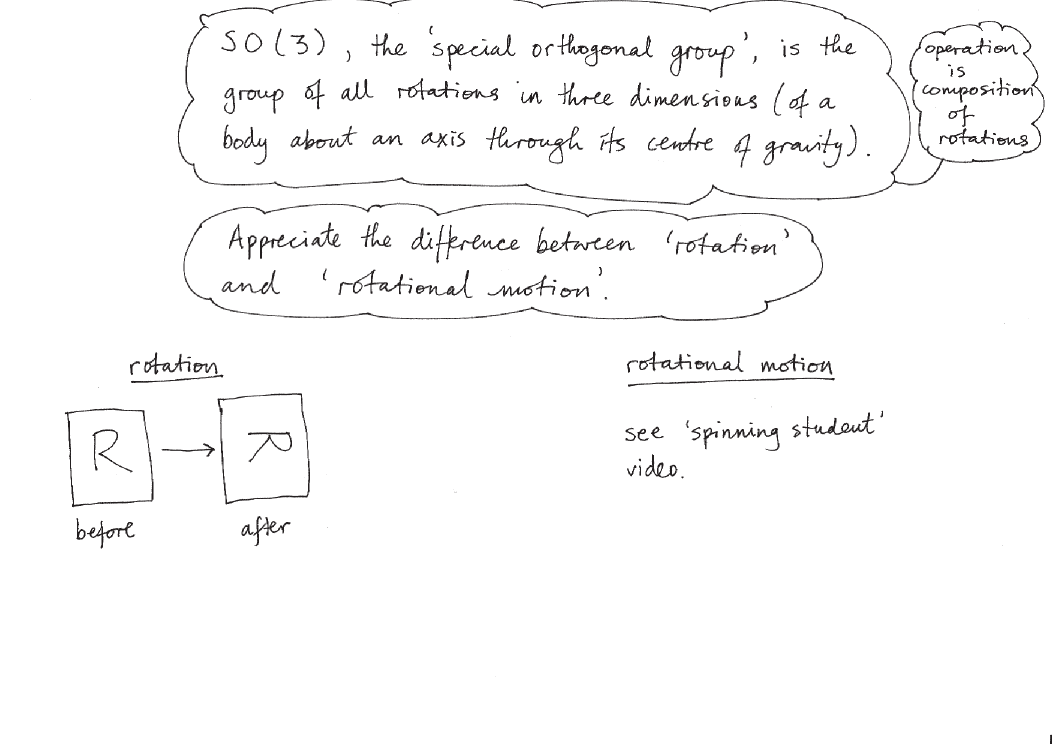 SO(3), the 'special orthogonal group', is the
group of all rotations in three dimensions (of a
body about an axis through its centre of gravity).
operation
is
composition
of
rotations
Appreciate the difference between 'rotation'
and 'rotational motion'.
rotation
R
R
before
after
rotational motion
see 'spinning student'
video.